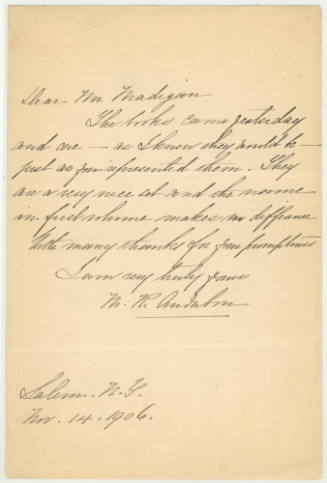 Dear Mr Madigan
The books came yesterday
and are - as I knew they would be -
just as you represented them. They
are a very nice set and the name
in first volume makes no difference
With many thanks for your promptness
I am very truly yours
M. R. Audubon
Salem. N.Y.
Nov. 14. 1906.